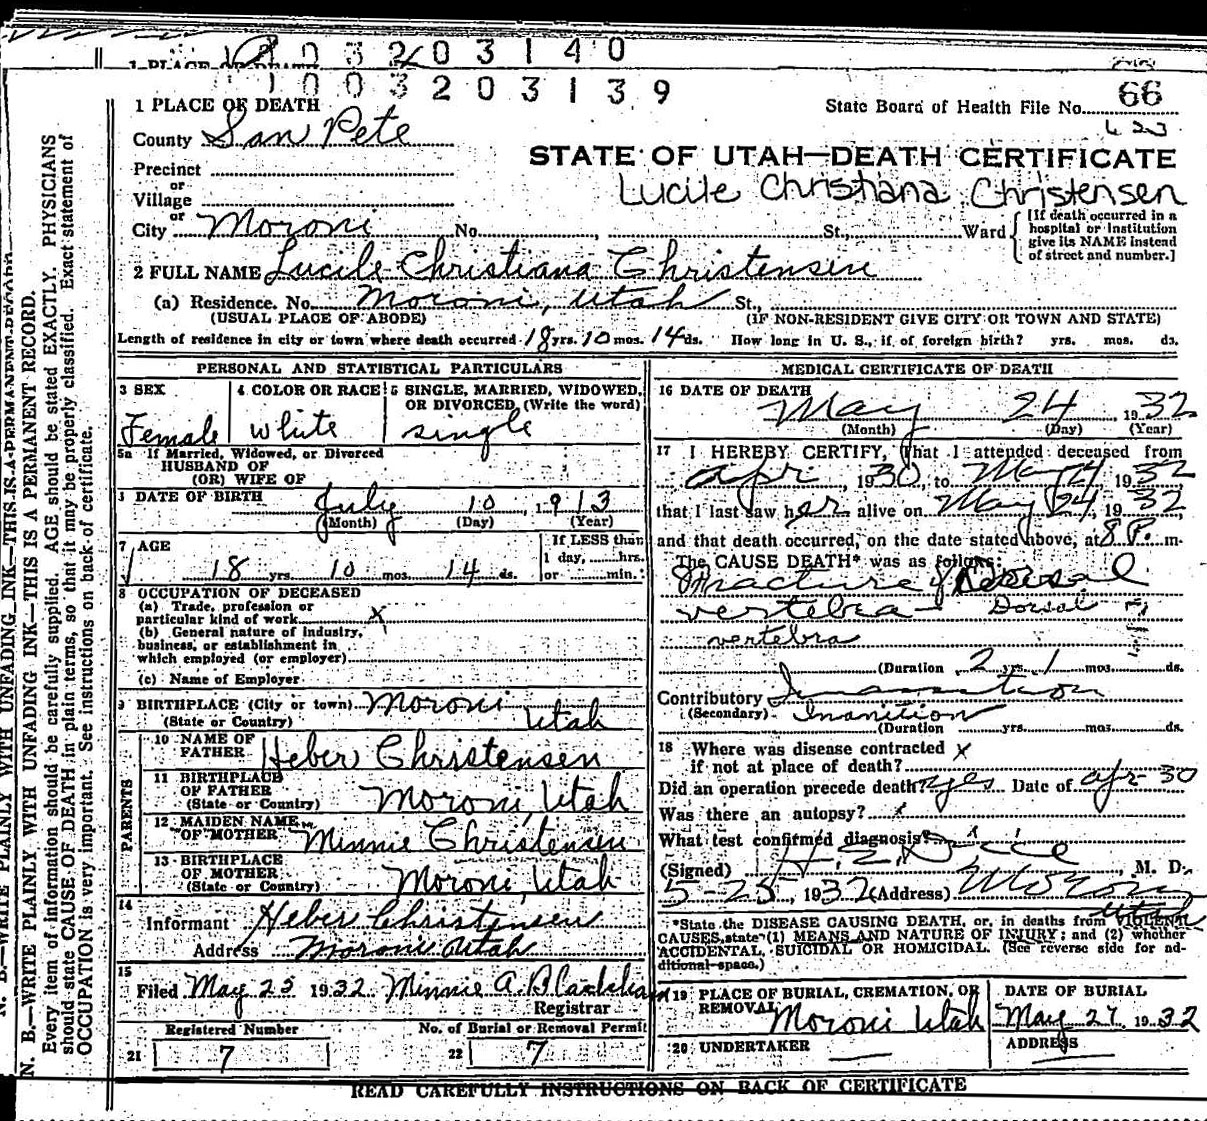 1 PLACE OF DEATH
1003203140
1003203139
State Board of Health File No. 66
1 PLACE OF DEATH
County San Pete
STATE OF UTAH—DEATH CERTIFICATE
Precinct
or
Village
Lucile Christiana Christensen
or
City Moroni No. St., Ward
[If death occurred in a hospital or institution give its NAME instead of street and number.]
2 FULL NAME Lucile Christiana Christensen
(a) Residence. No. Moroni, Utah St.,
(USUAL PLACE OF ABODE) (IF NON-RESIDENT GIVE CITY OR TOWN AND STATE)
Length of residence in city or town where death occurred 18 yrs. 10 mos. 14 ds. How long in U. S., if of foreign birth? yrs. mos. ds.
PERSONAL AND STATISTICAL PARTICULARS
3 SEX
Female
4 COLOR OR RACE
white
5 SINGLE, MARRIED, WIDOWED,
OR DIVORCED (Write the word)
single
5a If Married, Widowed, or Divorced
HUSBAND OF
(OR) WIFE OF
DATE OF BIRTH July 10, 1913
(Month) (Day) (Year)
7 AGE
18 yrs. 10 mos. 14 ds.
If LESS than
1 day, hrs.
or min.
8 OCCUPATION OF DECEASED
(a) Trade, profession or
particular kind of work x
(b) General nature of industry,
business, or establishment in
which employed (or employer)
(c) Name of Employer
9 BIRTHPLACE (City or town) Moroni
(State or Country) Utah
PARENTS
10 NAME OF
FATHER Heber Christensen
11 BIRTHPLACE
OF FATHER
(State or Country) Moroni, Utah
12 MAIDEN NAME
OF MOTHER Minnie Christensen
13 BIRTHPLACE
OF MOTHER
(State or Country) Moroni, Utah
14
Informant Heber Christensen
Address Moroni Utah
15
Filed May 25 1932 Minnie A.
Registrar
Registered Number
21 7
No. of Burial or Removal Permit
22 7
MEDICAL CERTIFICATE OF DEATH
16 DATE OF DEATH
May 24, 1932
(Month) (Day) (Year)
17 I HEREBY CERTIFY, That I attended deceased from
Apr, 1930, to May 24 1932
that I last saw her alive on May 24, 1932,
and that death occurred, on the date stated above, at 8 P. m.
The CAUSE DEATH* was as follows:
Fracture of Dorsal
vertebra Dorsal
vertebra
(Duration 2 yrs. 1 mos. ds.
Contributory Inanition
(Secondary) Inanition
(Duration yrs. mos. ds.
18 Where was disease contracted
if not at place of death? x
Did an operation precede death? yes Date of Apr 30
Was there an autopsy? x
What test confirmed diagnosis?
(Signed) , M. D.
5-25, 1932 (Address) Moroni
Utah
*State the DISEASE CAUSING DEATH, or, in deaths from VIOLENT
CAUSES, state (1) MEANS AND NATURE OF INJURY; and (2) whether
ACCIDENTAL, SUICIDAL OR HOMICIDAL. (See reverse side for ad-
ditional space.)
19 PLACE OF BURIAL, CREMATION, OR
REMOVAL
Moroni Utah
DATE OF BURIAL
May 27 1932
20 UNDERTAKER
ADDRESS
READ CAREFULLY INSTRUCTIONS ON BACK OF CERTIFICATE
N. B.—WRITE PLAINLY WITH UNFADING INK—THIS IS A PERMANENT RECORD.
N. B.—WRITE PLAINLY WITH UNFADING INK—THIS IS A PERMANENT RECORD.
Every item of information should be carefully supplied. AGE should be stated EXACTLY. PHYSICIANS
should state CAUSE OF DEATH in plain terms, so that it may be properly classified. Exact statement of
OCCUPATION is very important. See instructions on back of certificate.